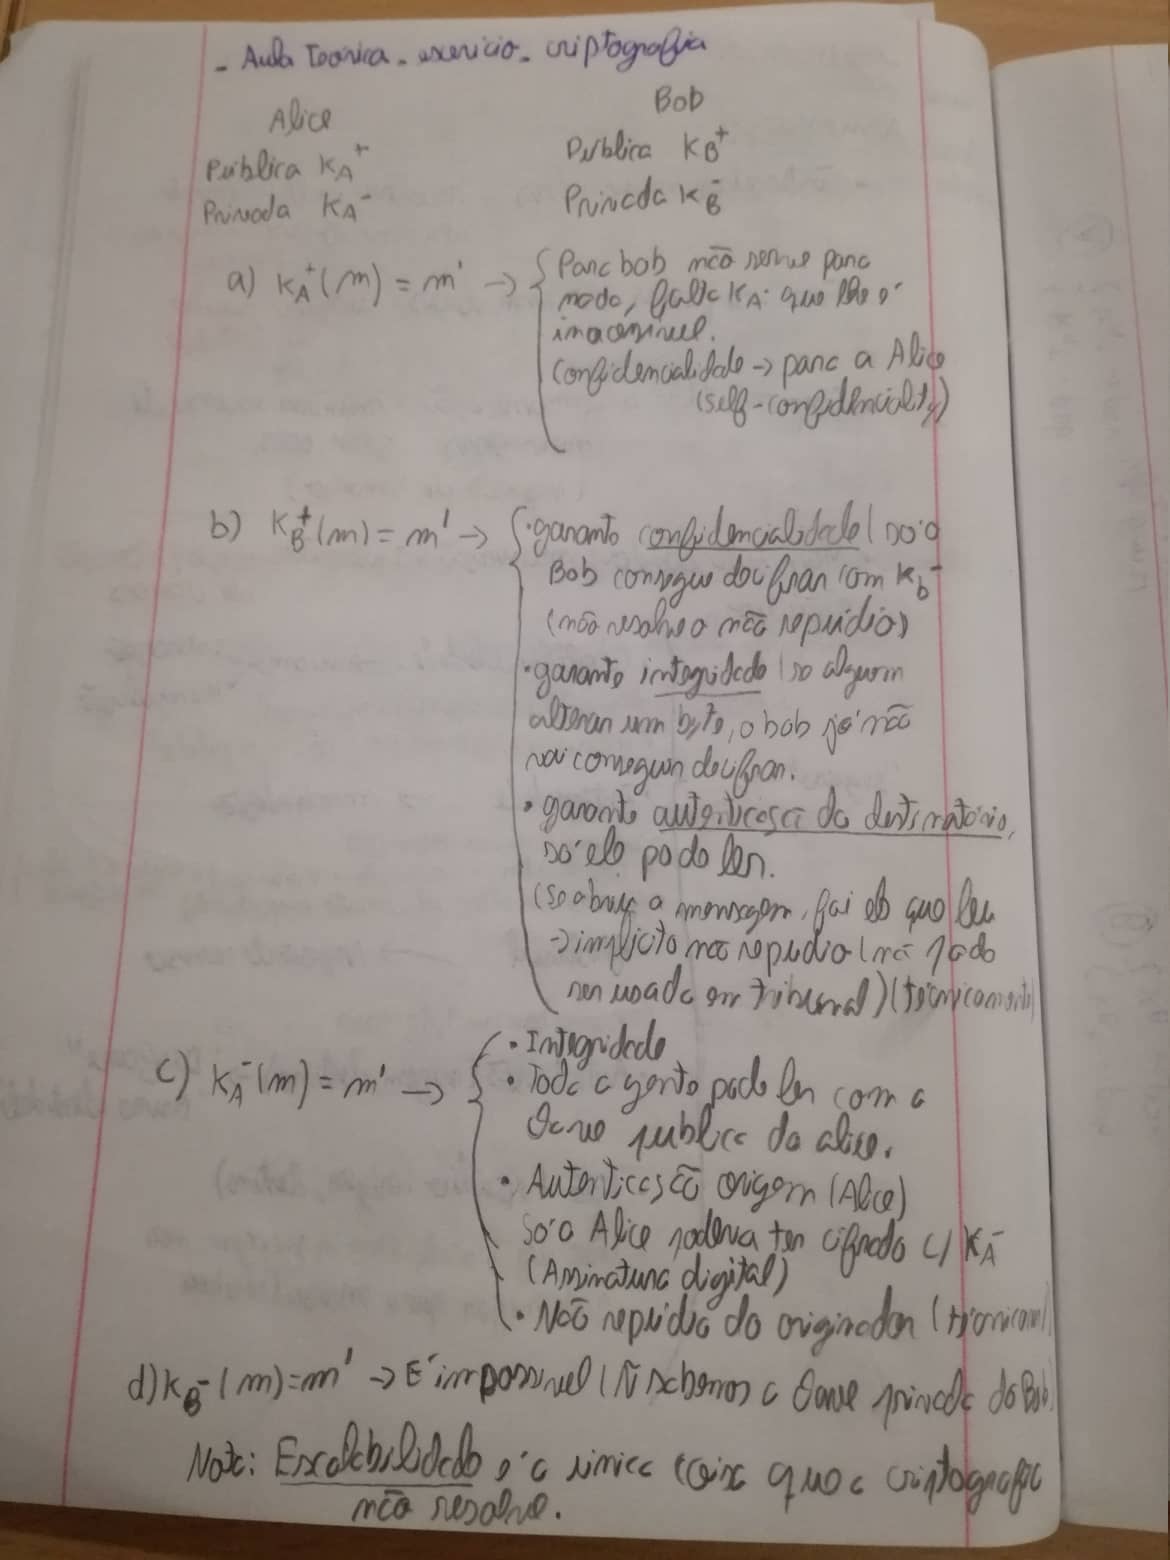 - Aula Teórica - exercicio - criptografia
Alice
Bob
Pública KA+
Privada KA-
Publica KB+
Privada KB-
a) KA+(m) = m' → { Para bob não serve para
nada, falta KA- que lhe é
inacessivel.
Confidencialidade → para a Alice
(self-confidenciality)
b) KB+(m) = m' → { • garante confidencialidade (só o
Bob consegue decifrar com Kb-
(não resolve o não repúdio)
• garante integridade (se alguem
alterar um byte, o bob já não
vai conseguir decifrar.
• garante autenticação do destinatário,
só ele pode ler.
(se abriu a mensagem, foi ele que leu
→ implicito não repudio (não pode
ser usado em tribunal) (técnicamente)
c) KA-(m) = m' → { • Integridade
• Toda a gente pode ler com a
chave publica da alice.
• Autenticação origem (Alice)
Só a Alice poderia ter cifrado c/ KA-
(Assinatura digital)
• Não repúdio do originador (técnicam)
d) KB-(m) = m' → É impossivel (Ñ sabemos a chave privada do Bob)
Nota: Escalabilidade é a unica coisa que a criptografia
não resolve.